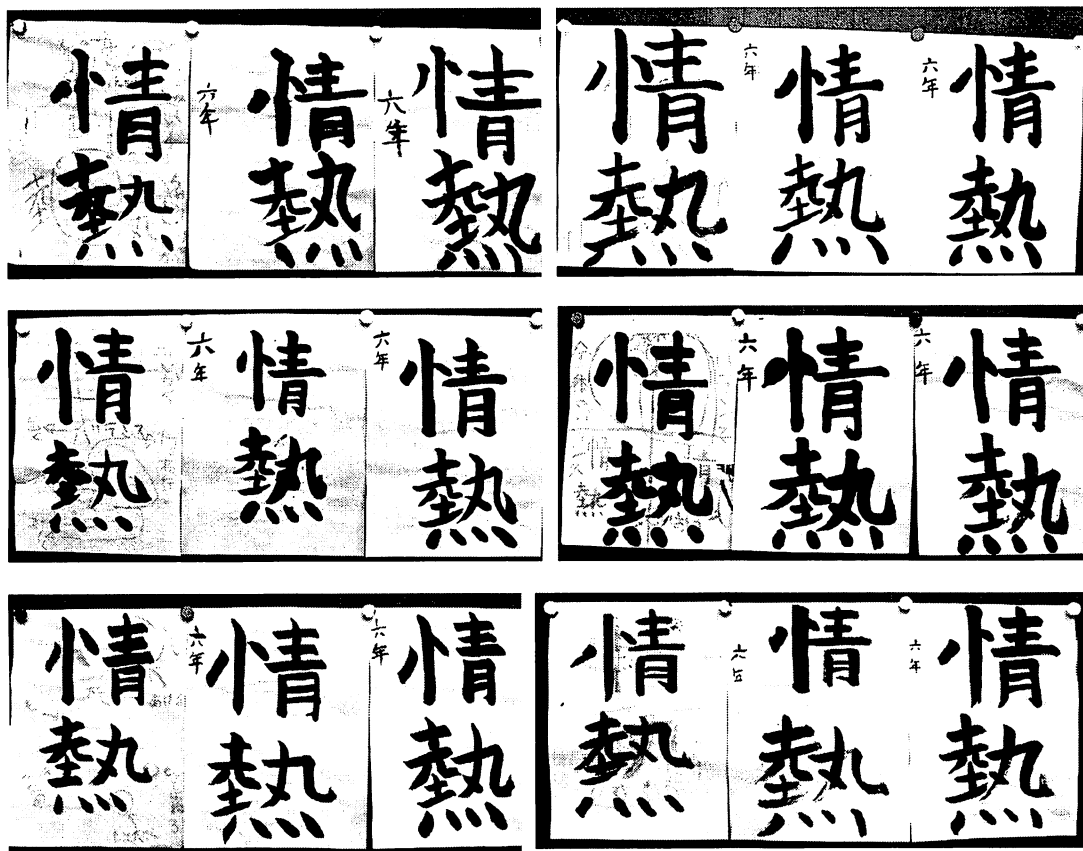 情熱
情熱
六年
情熱
六年
情熱
情熱
六年
情熱
六年
情熱
バランス
情熱
六年
情熱
六年
情熱
情熱
六年
情熱
六年
情熱
情熱
六年
情熱
六年
情熱
情熱
六年
情熱
六年